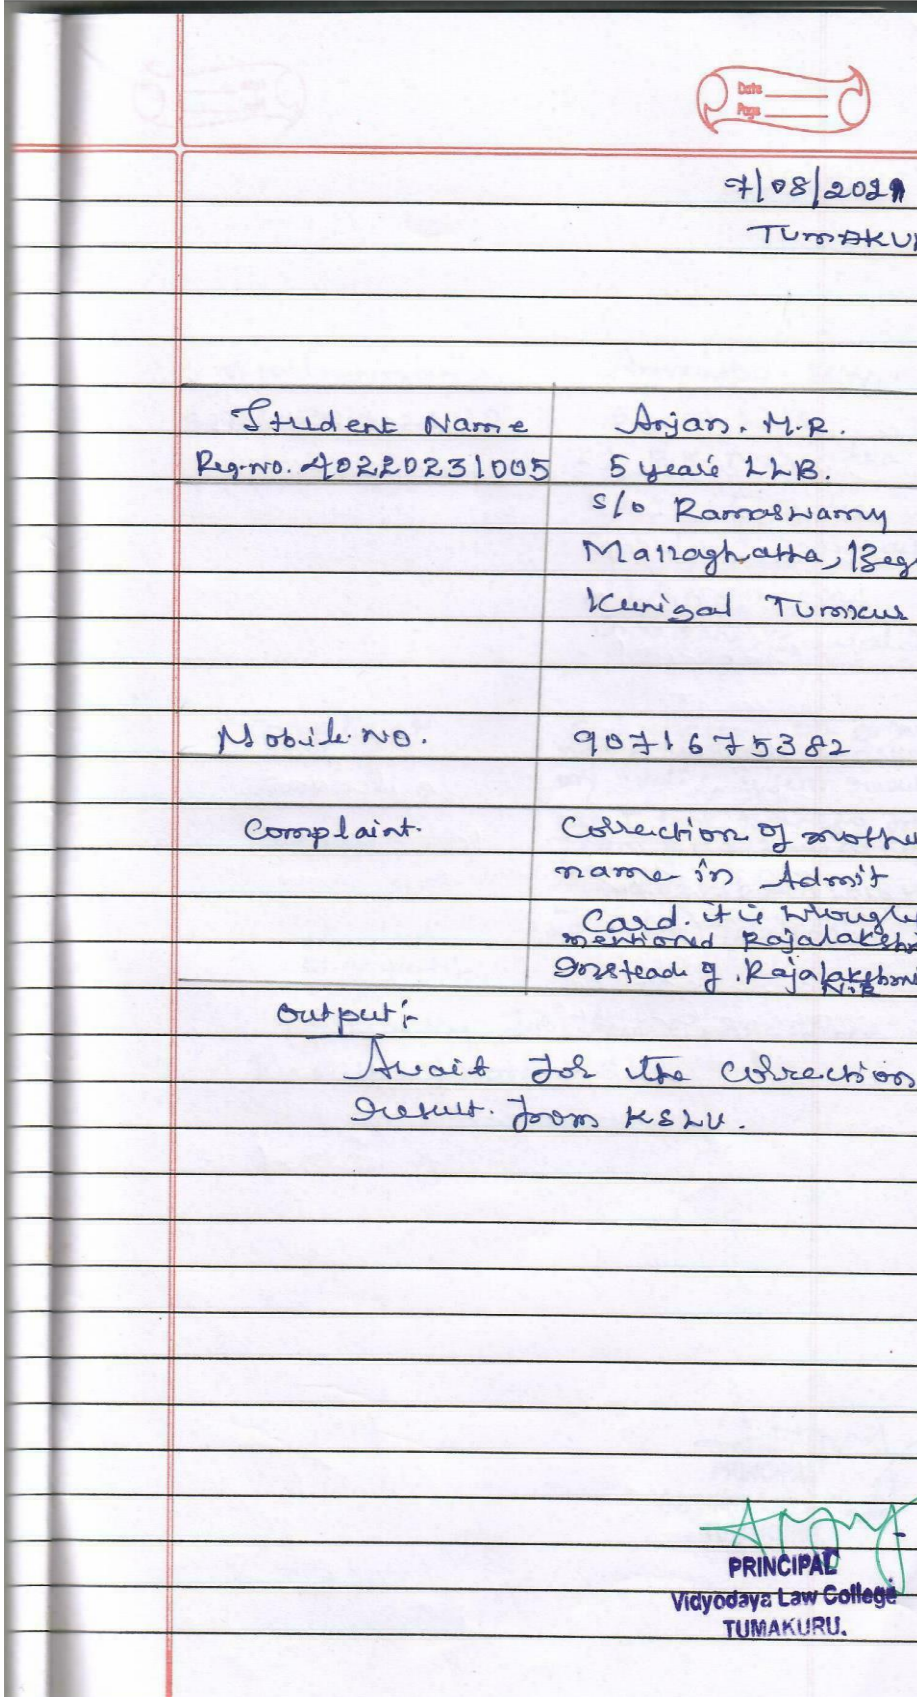 Date
Page
7/08/2021
TUMAKU
Student Name Anjan. M.R.
Reg.no. 40220231005 5 year's LLB.
S/o Ramaswamy
Kunigal Tumkur
Mobile No. 9071675382
Complaint. Correction of mothe
name in Admit
Card. it is wrongly
mentioned Rajalakshm
Instead of. Rajalakshmi
N.R
output:-
Await for the correction
result. from KSLU.
PRINCIPAL
Vidyodaya Law College
TUMAKURU.